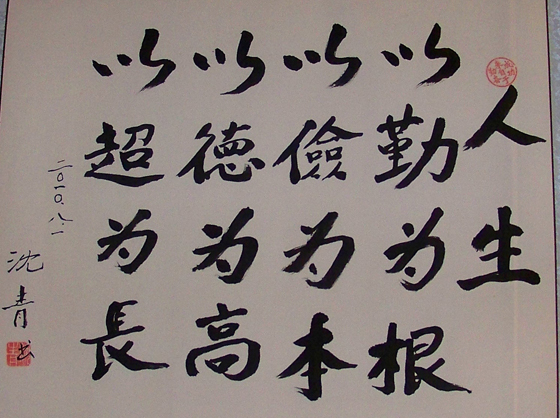 人生
以勤为根
以儉为本
以德为高
以超为長
二〇一〇.八.一
沈青书